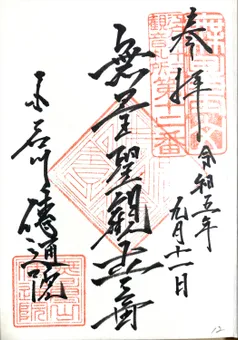 奉拝
令和五年
九月十一日
観音札所第十二番
無量聖観世音
小石川傳通院
12